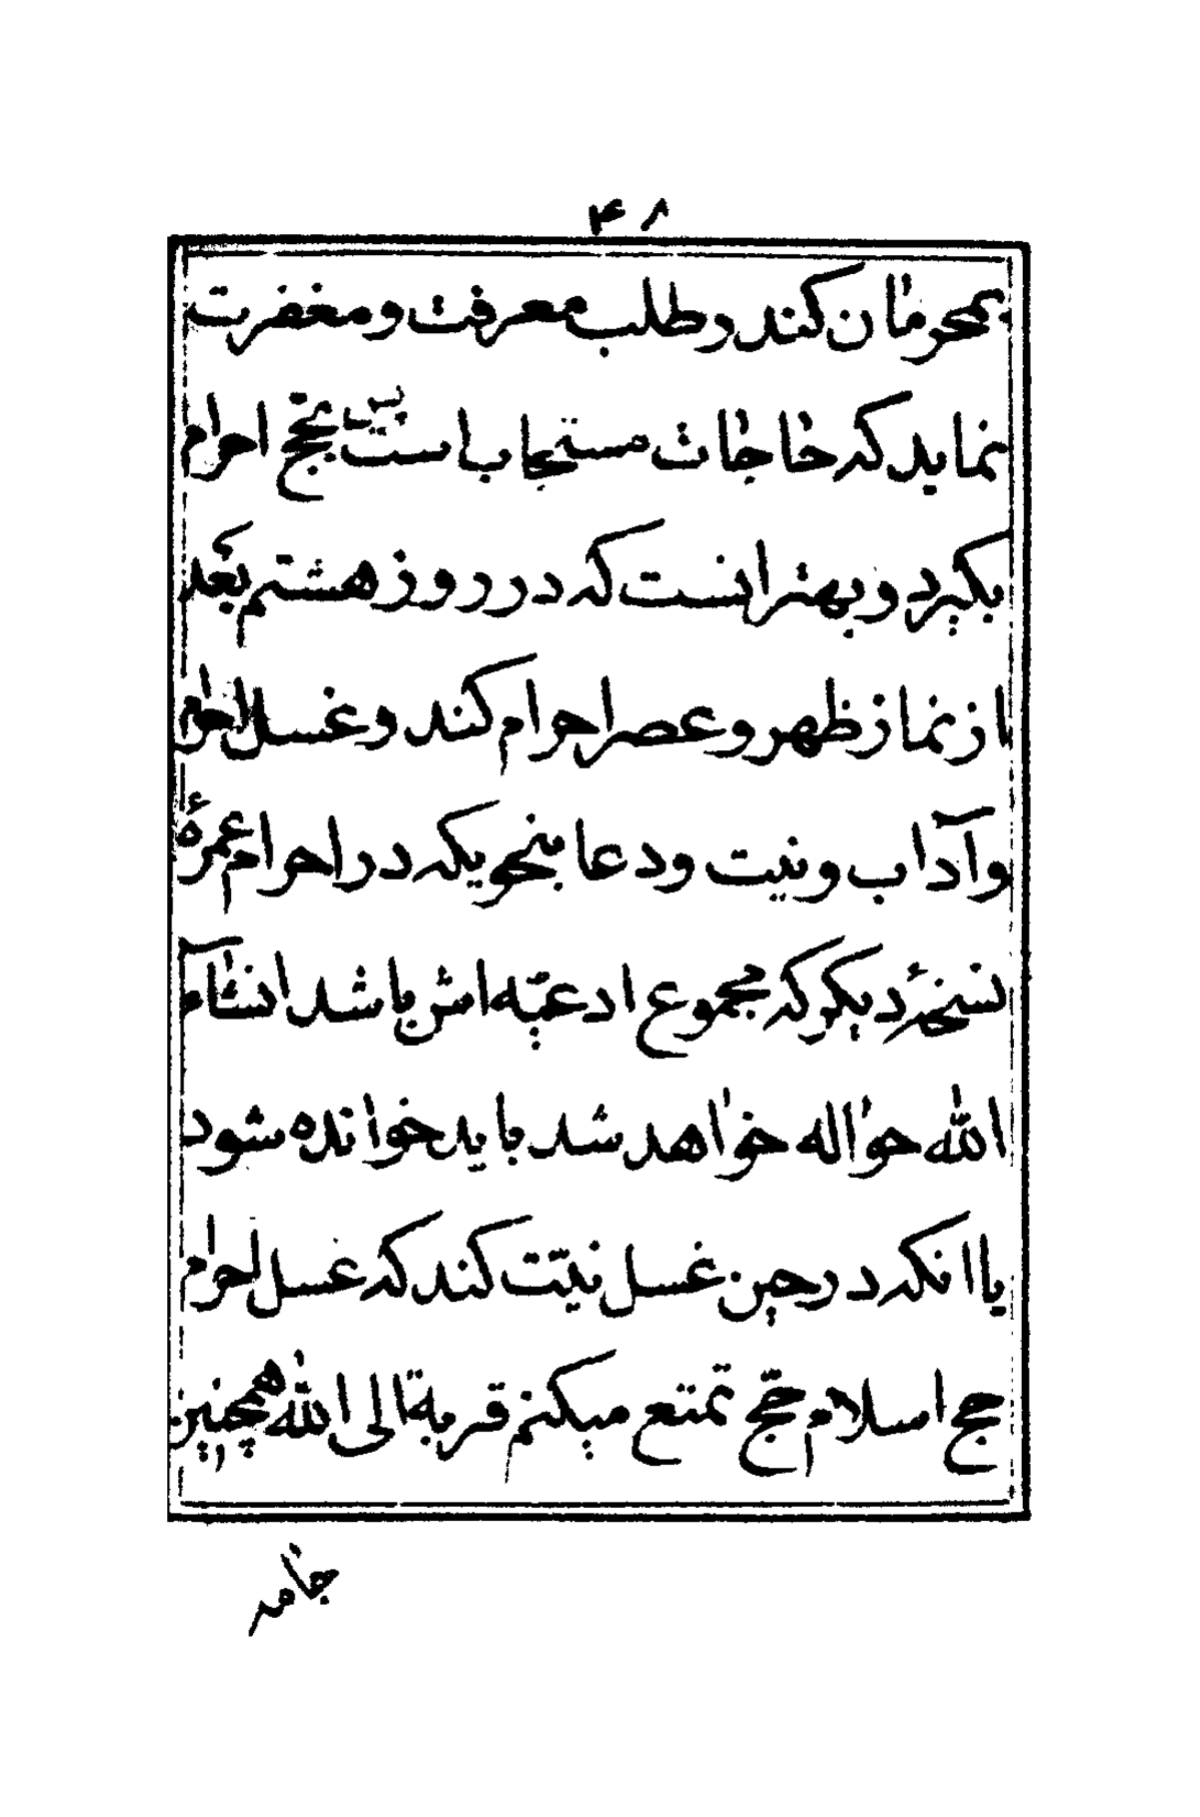 ۴۸
بمحرمان کند و طلب معرفت و مغفرت
نماید که حاجات مستجاب است پس بحج احرام
بگیرد و بهتر انست که در روز هشتم بعد
از نماز ظهر و عصر احرام کند و غسل احرام
و آداب و نیت و دعا بنحویکه در احرام عمرۀ
نسخۀ دیگر که مجموع ادعیّه اش باشد انشآء
الله حواله خواهد شد باید خوانده شود
یا انکه در حین غسل نیّت کند که غسل احرام
حج اسلام حجّ تمتع میکنم قربة الی الله همچنین
جامه